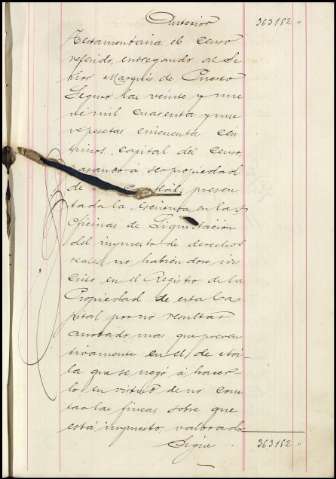 Anterior 363182
Testamentaria el censo
referido, entregando al Se
ñor Marqués de Cuevo
las veinte y nue
ve mil cuarenta y nue
ve pesetas cincuenta cen
timos, capital del censo
pasando á ser propiedad
de presen
tada la Escritura á las
Oficinas de Liquidación
del impuesto de derechos
reales, no habiendose ins
crito en el Registro de la
Propiedad de esta Ca
pital por no resultar
anotado, mas que preven
tivamente en el de
la que se negó á hacer
lo, en virtud de no cons
tar las fincas sobre que
está impuesto, valorado
Sigue 363182